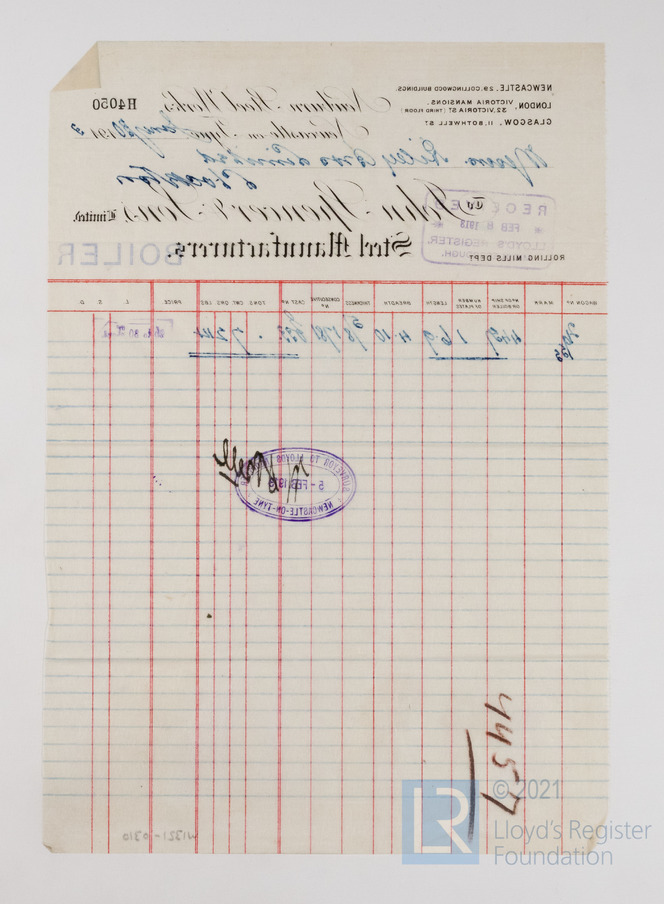 H4050
Newburn Steel Works,
Newcastle-on-Tyne Jany 30 1913
NEWCASTLE, 29, COLLINGWOOD BUILDINGS.
LONDON, VICTORIA MANSIONS, 32, VICTORIA ST (THIRD FLOOR)
GLASGOW, 11, BOTHWELL ST
Messrs Riley Bros Limited
Stockton
To John Spencer & Sons, Limited,
Steel Manufacturers.
RECEIVED
FEB 1913
LLOYD'S REGISTER,
BOILER
ROLLING MILLS DEPT
WAGON No MARK No OF SHIP OR BOILER NUMBER OF PLATES LENGTH BREADTH THICKNESS CONSECUTIVE No CAST No TONS. CWT. QRS. LBS. PRICE. £ S D.
4431 1 6 9 4 10 5/8 7 2
NEWCASTLE-ON-TYNE
5 - FEB 1913
SURVEYOR TO LLOYDS
4457
W1351-0310
© 2021
LR
Lloyd's Register
Foundation